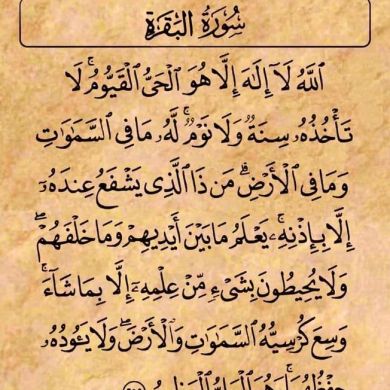 سُورَةُ البَقَرَةِ
ٱللَّهُ لَآ إِلَٰهَ إِلَّا هُوَ ٱلۡحَيُّ ٱلۡقَيُّومُۚ لَا
تَأۡخُذُهُۥ سِنَةٞ وَلَا نَوۡمٞۚ لَّهُۥ مَا فِي ٱلسَّمَٰوَٰتِ
وَمَا فِي ٱلۡأَرۡضِۗ مَن ذَا ٱلَّذِي يَشۡفَعُ عِندَهُۥٓ
إِلَّا بِإِذۡنِهِۦۚ يَعۡلَمُ مَا بَيۡنَ أَيۡدِيهِمۡ وَمَا خَلۡفَهُمۡۖ
وَلَا يُحِيطُونَ بِشَيۡءٖ مِّنۡ عِلۡمِهِۦٓ إِلَّا بِمَا شَآءَۚ
وَسِعَ كُرۡسِيُّهُ ٱلسَّمَٰوَٰتِ وَٱلۡأَرۡضَۖ وَلَا يَـُٔودُهُۥ
حِفۡظُهُمَاۚ وَهُوَ ٱلۡعَلِيُّ ٱلۡعَظِيمُ